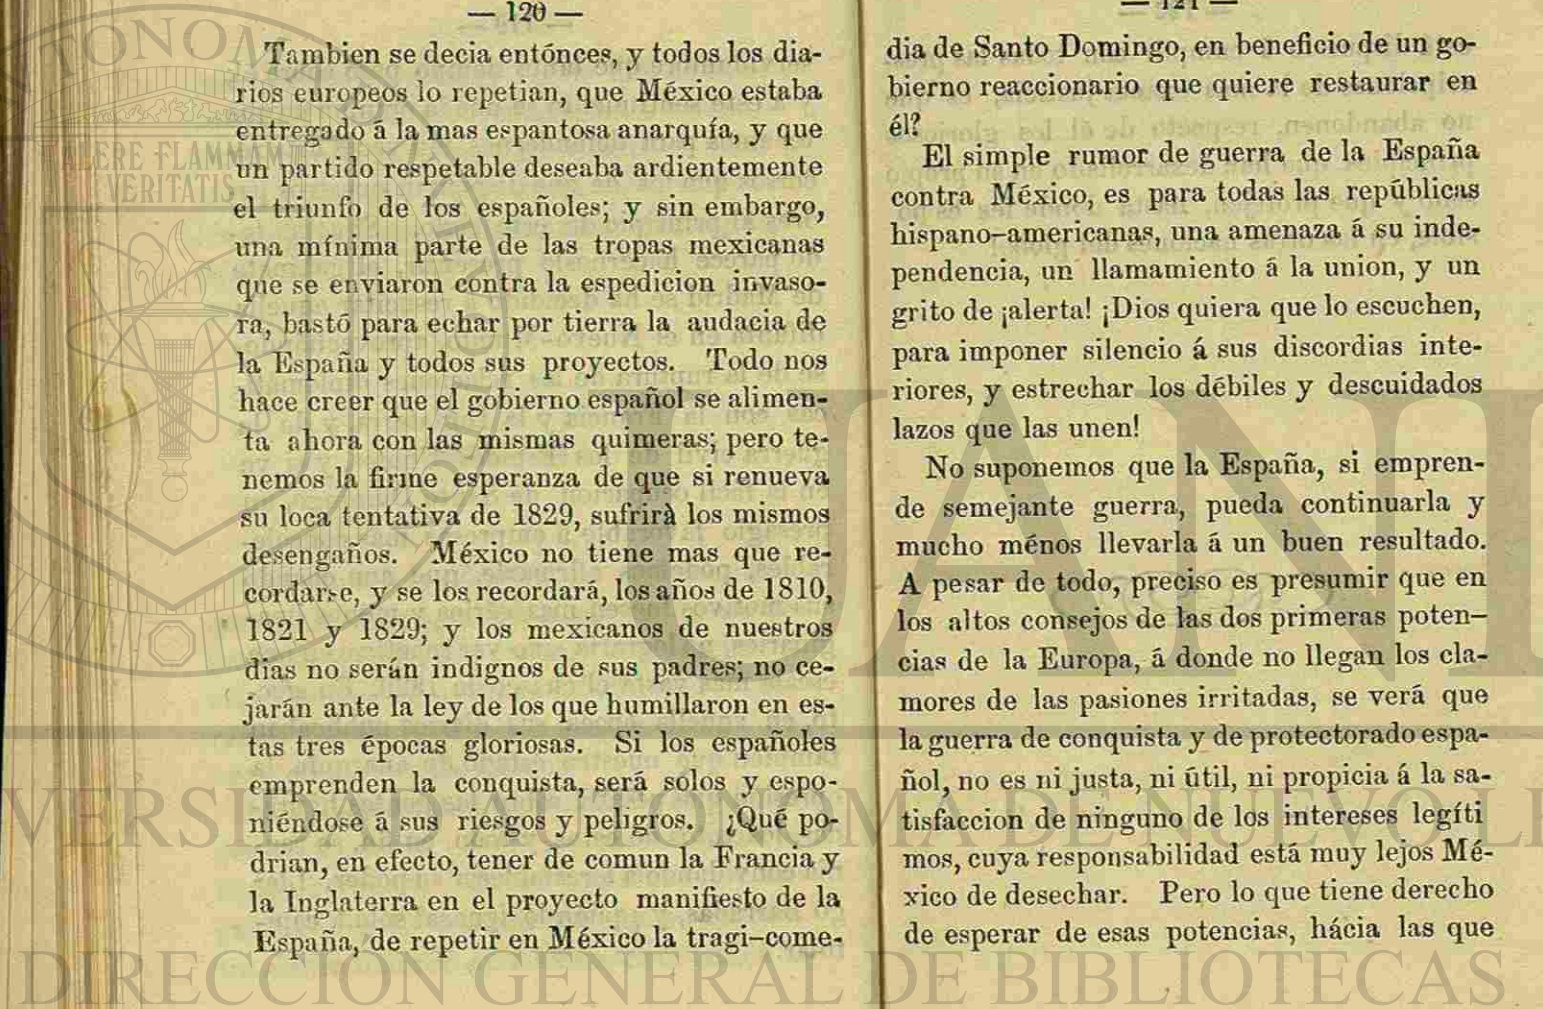 — 120 —
Tambien se decia entónces, y todos los dia-
rios europeos lo repetian, que México estaba
entregado á la mas espantosa anarquía, y que
un partido respetable deseaba ardientemente
el triunfo de los españoles; y sin embargo,
una mínima parte de las tropas mexicanas
que se enviaron contra la espedicion invaso-
ra, bastó para echar por tierra la audacia de
la España y todos sus proyectos. Todo nos
hace creer que el gobierno español se alimen-
ta ahora con las mismas quimeras; pero te-
nemos la firme esperanza de que si renueva
su loca tentativa de 1829, sufrirà los mismos
desengaños. México no tiene mas que re-
cordarse, y se los recordará, los años de 1810,
1821 y 1829; y los mexicanos de nuestros
dias no serán indignos de sus padres; no ce-
jarán ante la ley de los que humillaron en es-
tas tres épocas gloriosas. Si los españoles
emprenden la conquista, será solos y espo-
niéndose á sus riesgos y peligros. ¿Qué po-
drian, en efecto, tener de comun la Francia y
la Inglaterra en el proyecto manifiesto de la
España, de repetir en México la tragi-come-
— 121 —
dia de Santo Domingo, en beneficio de un go-
bierno reaccionario que quiere restaurar en
él?
El simple rumor de guerra de la España
contra México, es para todas las repúblicas
hispano-americanas, una amenaza á su inde-
pendencia, un llamamiento á la union, y un
grito de ¡alerta! ¡Dios quiera que lo escuchen,
para imponer silencio á sus discordias inte-
riores, y estrechar los débiles y descuidados
lazos que las unen!
No suponemos que la España, si empren-
de semejante guerra, pueda continuarla y
mucho ménos llevarla á un buen resultado.
A pesar de todo, preciso es presumir que en
los altos consejos de las dos primeras poten-
cias de la Europa, á donde no llegan los cla-
mores de las pasiones irritadas, se verá que
la guerra de conquista y de protectorado espa-
ñol, no es ni justa, ni útil, ni propicia á la sa-
tisfaccion de ninguno de los intereses legíti
mos, cuya responsabilidad está muy lejos Mé-
xico de desechar. Pero lo que tiene derecho
de esperar de esas potencias, hácia las que
TONOM
ALERE FLAMMAM
VERITATIS
UANL
VERSIDAD AUTÓNOMA DE NUEVO LE
DIRECCIÓN GENERAL DE BIBLIOTECAS